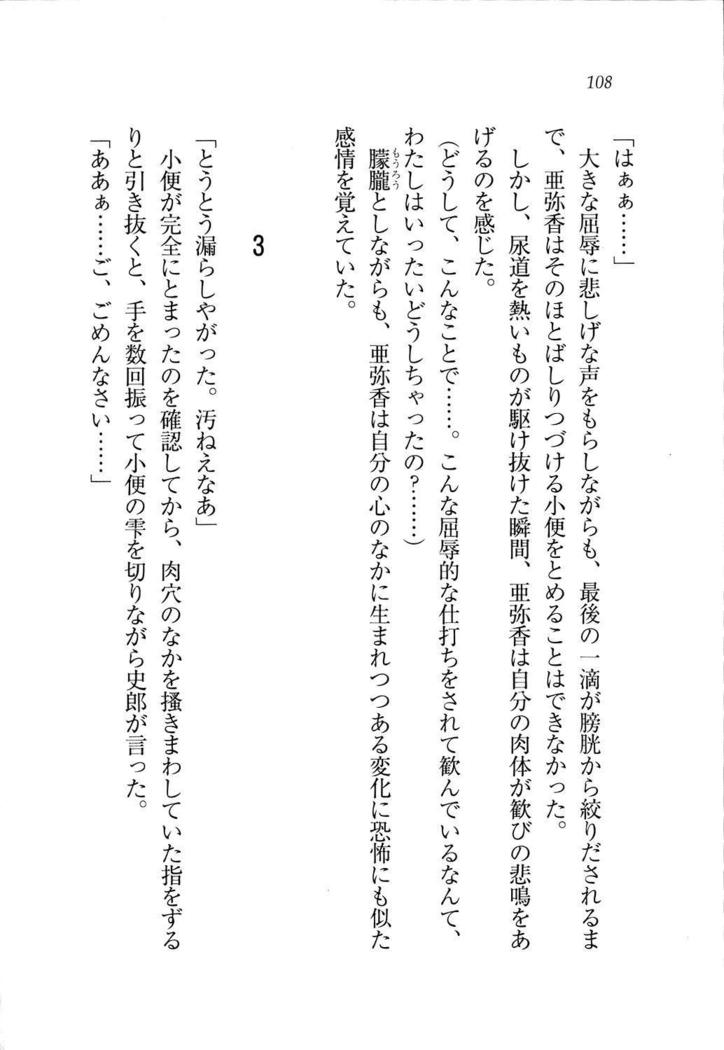 108
「はぁぁ……」
　大きな屈辱に悲しげな声をもらしながらも、最後の一滴が膀胱から絞りだされるま
で、亜弥香はそのほとばしりつづける小便をとめることはできなかった。
　しかし、尿道を熱いものが駆け抜けた瞬間、亜弥香は自分の肉体が歓びの悲鳴をあ
げるのを感じた。
（どうして、こんなことで……。こんな屈辱的な仕打ちをされて歓んでいるなんて、
わたしはいったいどうしちゃったの？………）
　朦朧としながらも、亜弥香は自分の心のなかに生まれつつある変化に恐怖にも似た
もうろう
感情を覚えていた。
3
「とうとう漏らしやがった。汚ねえなあ」
　小便が完全にとまったのを確認してから、肉穴のなかを掻きまわしていた指をずる
りと引き抜くと、手を数回振って小便の雫を切りながら史郎が言った。
「ああぁ……ご、ごめんなさい……」